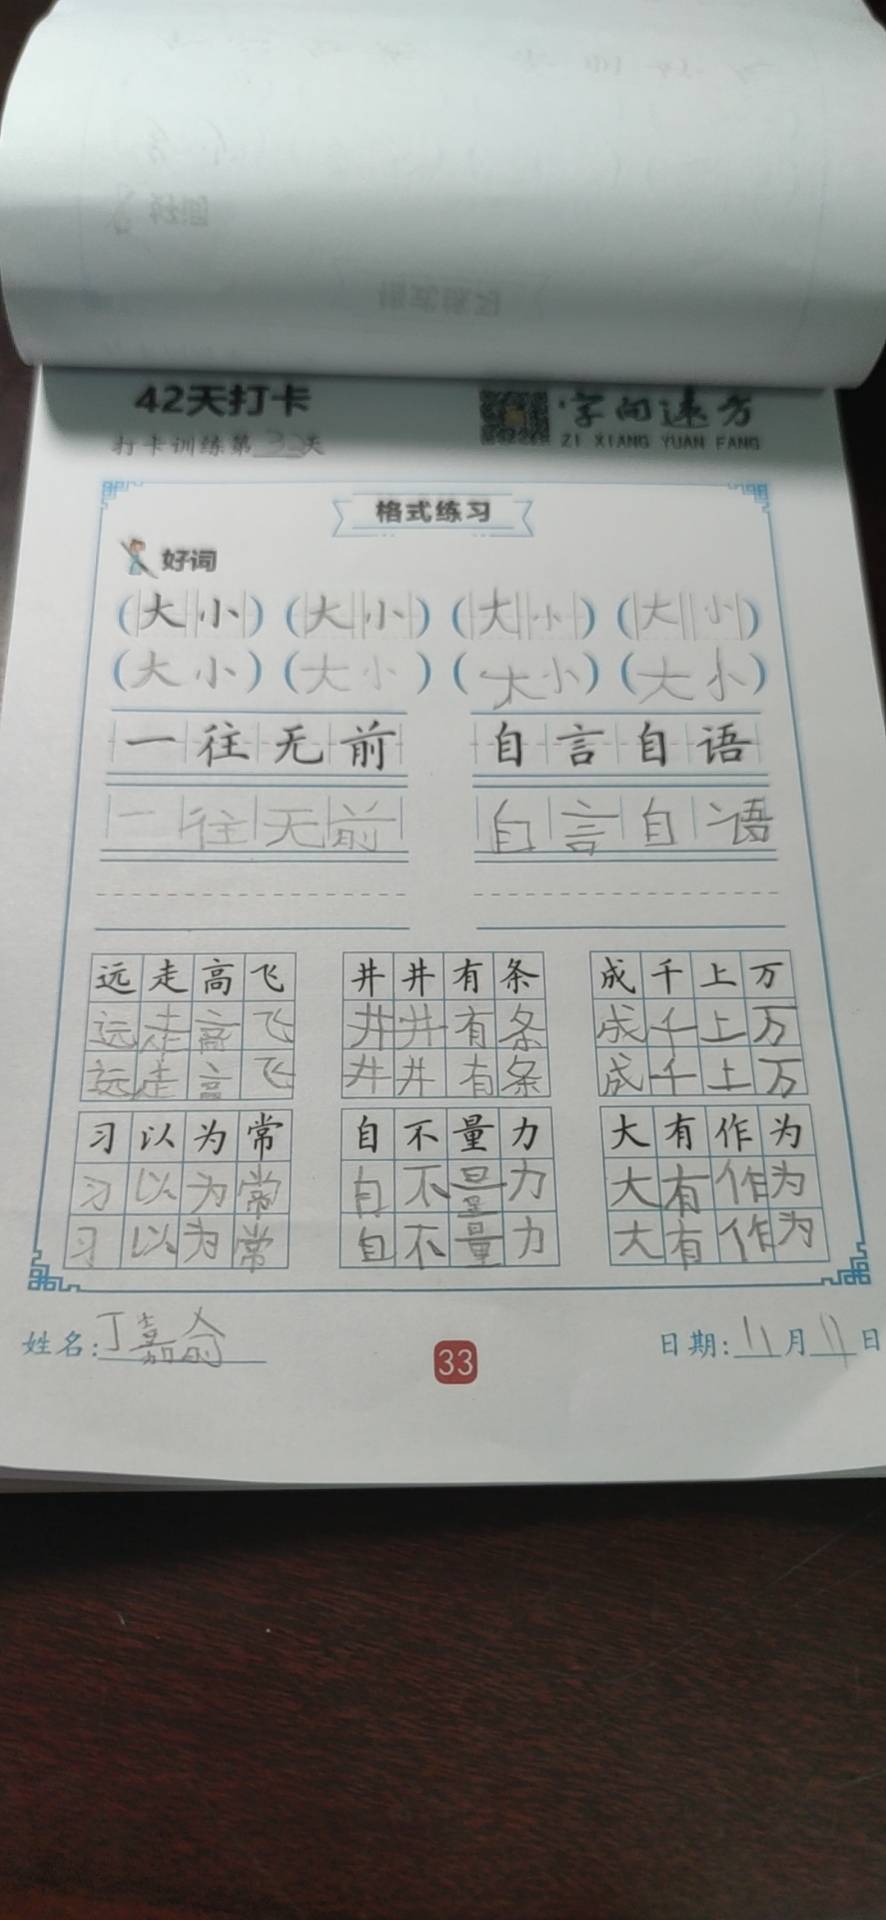 42天打卡
字向远方
打卡训练第33天
ZI XIANG YUAN FANG
格式练习
好词
(大小) (大小) (大小) (大小)
(大小) (大小) (大小) (大小)
一往无前 自言自语
一往无前 自言自语
远走高飞 井井有条 成千上万
远走高飞 井井有条 成千上万
远走高飞 井井有条 成千上万
习以为常 自不量力 大有作为
习以为常 自不量力 大有作为
习以为常 自不量力 大有作为
姓名:丁嘉俞 33 日期:11月11日